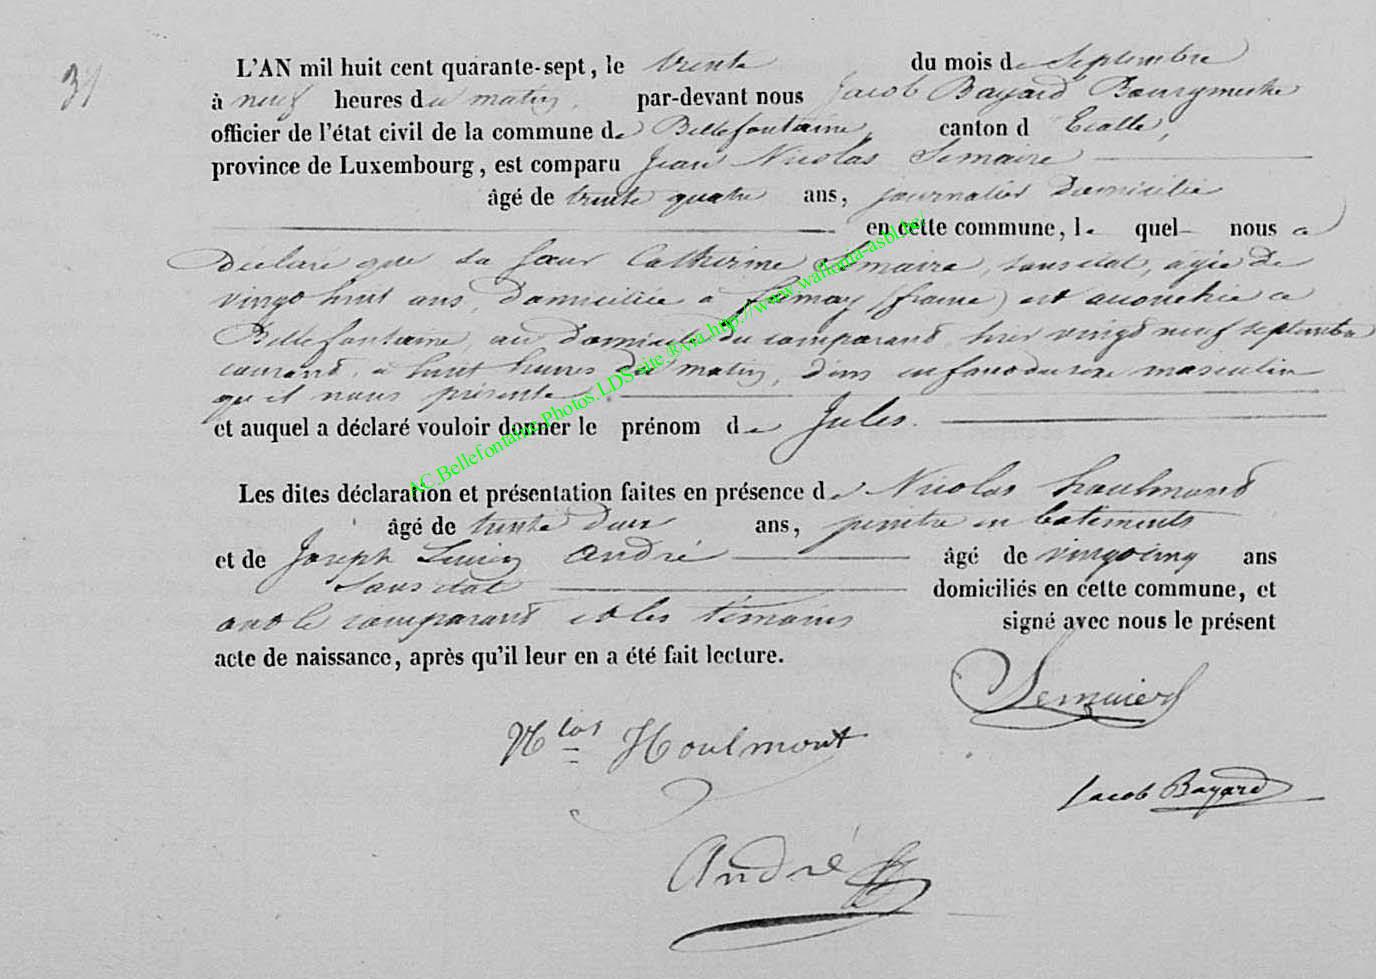 31
L'AN mil huit cent quarante-sept, le trente du mois de Septembre
à neuf heures du matin, par-devant nous Jacob Bayard Bourgmestre
officier de l'état civil de la commune de Bellefontaine, canton d'Etalle,
province de Luxembourg, est comparu Jean Nicolas Semaire
âgé de trente quatre ans, journalier domicilié
en cette commune, le quel nous a
déclaré que sa sœur Catherine Semaire, sans état, agée de
vingt huit ans, domiciliée a (france) est accouchée a
Bellefontaine, au domicile du comparant, hier vingt neuf septembre
courant, a huit heures du matin, d'un enfant du sexe masculin
qu'il nous présente
et auquel a déclaré vouloir donner le prénom de Jules.
Les dites déclaration et présentation faites en présence de Nicolas houlmont
âgé de trente deux ans, peintre en batiments
et de Joseph Lucien André âgé de vingt cinq ans
Sans état domiciliés en cette commune, et
ont le comparant et les témoins signé avec nous le présent
acte de naissance, après qu'il leur en a été fait lecture.
Semaire
Nlas Houlmont
Jacob Bayard
André
AC.Bellefontaine.Photos.LDS site ® via http://www.wallonia-asbl.be/